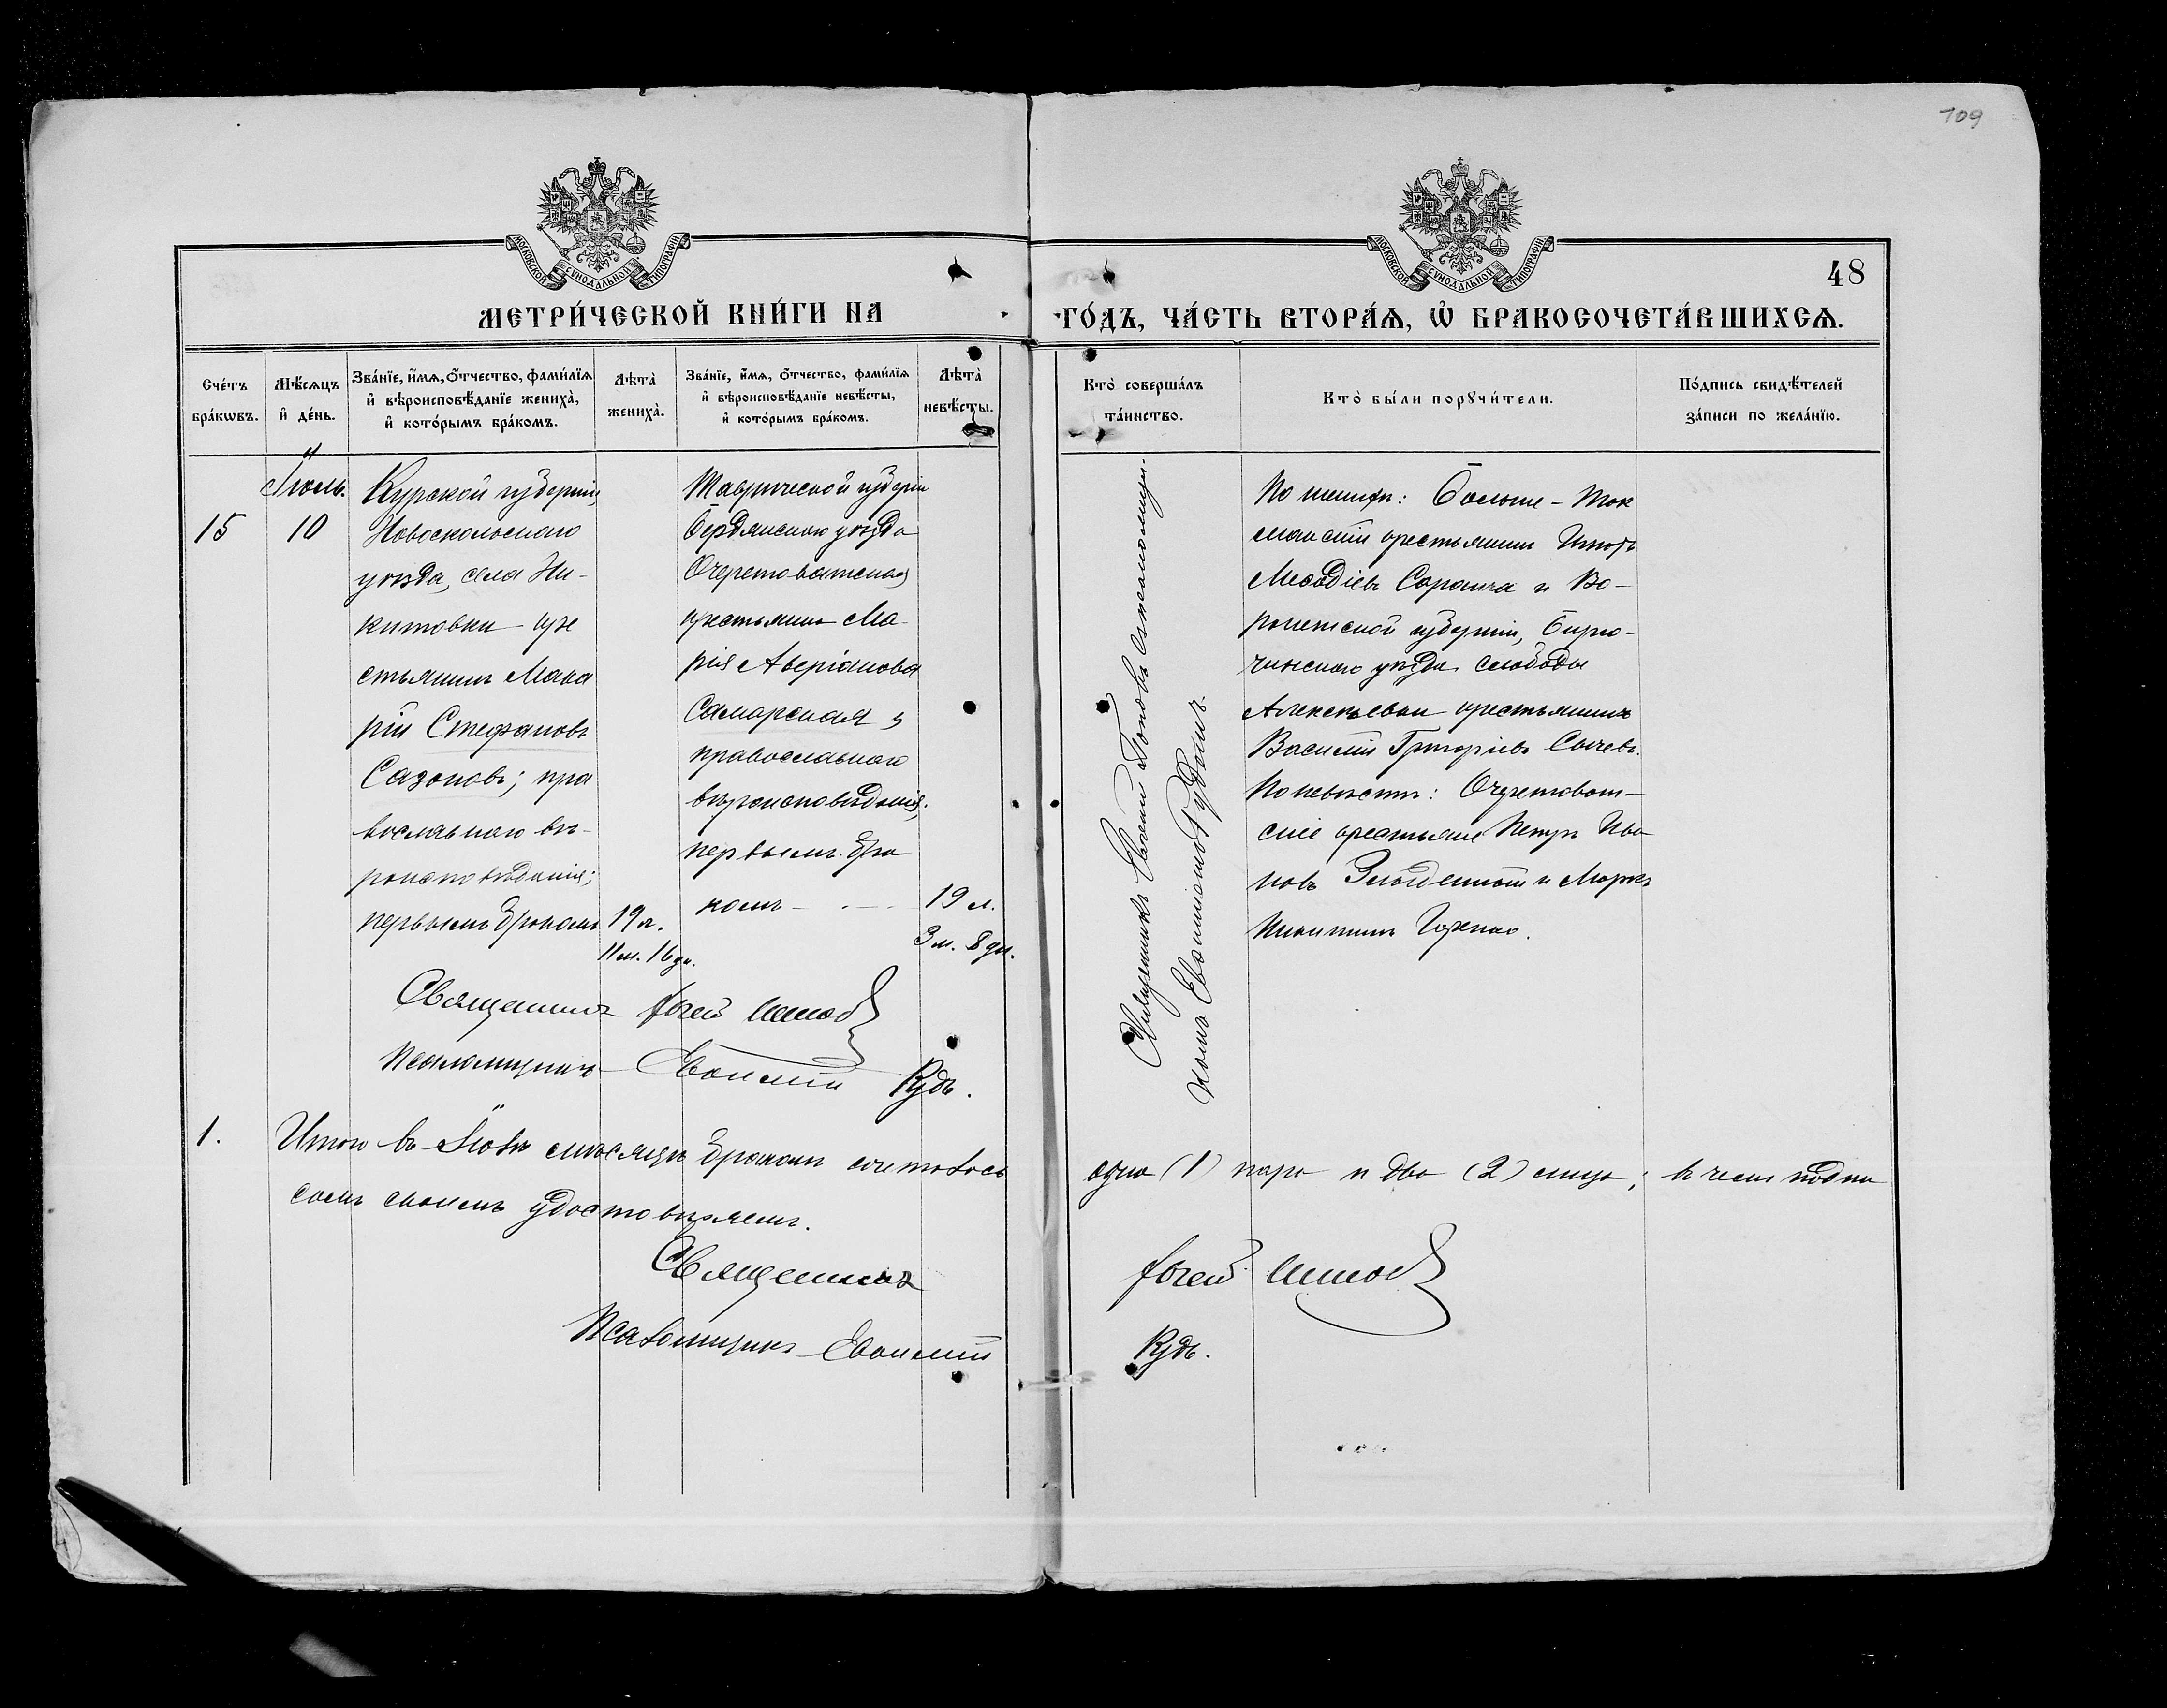 709
МОСКОВСКОЙ СѴНОДАЛЬНОЙ ТИПОГРАФІИ
МОСКОВСКОЙ СѴНОДАЛЬНОЙ ТИПОГРАФІИ
48
МЕТРИ́ЧЕСКОЙ КНИ́ГИ НА
ГО́ДЪ, ЧА́СТЬ ВТОРА́Ѧ, Ѡ҆ БРАКОСОЧЕТА́ВШИХСѦ.
Сче́тъ
бра́кѡвъ.
Мѣ́сѧцъ
и҆ де́нь.
Зва́нїе, и҆́мѧ, ѻ҆́тчество, фами́лїѧ
и҆ вѣроисповѣ́данїе жениха̀,
и҆ кото́рымъ бра́комъ.
Лѣта̀
жениха̀.
Зва́нїе, и҆́мѧ, ѻ҆́тчество, фами́лїѧ
и҆ вѣроисповѣ́данїе невѣ́сты,
и҆ кото́рымъ бра́комъ.
Лѣта̀
невѣ́сты.
Кто̀ соверша́лъ
та́инство.
Кто̀ бы́ли порꙋчи́тели.
По́дпись свидѣ́телей
за́писи по жела́нїю.
Іюль.
15
10
Курской губерніи,
Новооскольскаго
уѣзда, села Ни-
китовки кре
стьянинъ Мака
рій Стефановъ
Сазоновъ; пра
вославнаго вѣ-
роисповѣданія;
первымъ бракомъ
19 л.
11 м. 16 дн.
Таврической губерніи
Бердянскаго уѣзда
Очеретоватская
крестьянка Ма-
рія Аверіанова
Самарская,
православнаго
вѣроисповѣданія,
первымъ бра
комъ
19 л.
3 м. 8 дн.
Священникъ Евгеній Поповъ съ псаломщи-
комъ Евфиміемъ
По женихѣ: Больше-Ток
макскій крестьянинъ
Меѳодіевъ и Во-
ронежской губерніи, Бирю-
чинскаго уѣзда слободы
Алексѣевки крестьянинъ
Василій Григоріевъ Сычевъ.
По невѣстѣ: Очеретоват-
скіе крестьяне Петръ Ива
новъ и Маркъ
Никитинъ
Священникъ Евгеній Поповъ
Псаломщикъ Евфимій
1.
Итого въ Іюлѣ мѣсяцѣ бракомъ сочеталось
одна (1) пара и два (2) лица; въ чемъ подпи
сомъ своимъ удостовѣряемъ.
Священникъ
Евгеній Поповъ
Псаломщикъ Евфимій